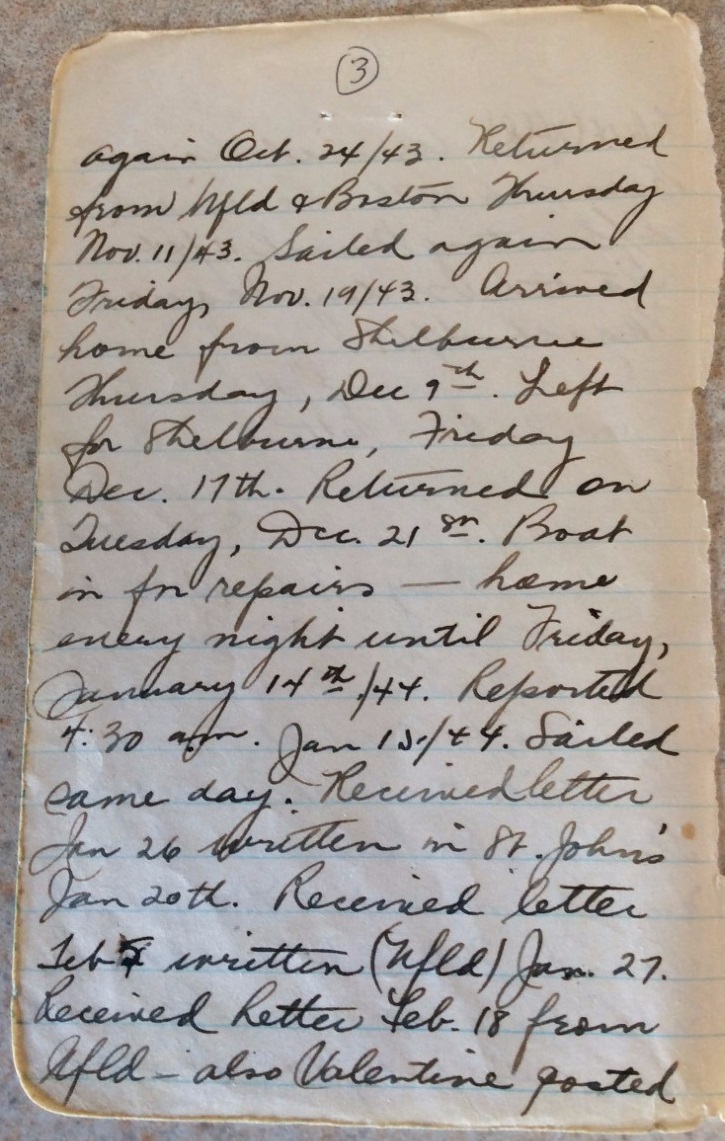 3
again Oct. 24/43. Returned
from Nfld & Boston Thursday
Nov. 11/43. Sailed again
Friday, Nov. 19/43. Arrived
home from Shelburne
Thursday, Dec 9th. Left
for Shelburne, Friday
Dec. 17th. Returned on
Tuesday, Dec. 21st. Boat
in for repairs — home
every night until Friday,
January 14th/44. Reported
4:30 a.m. Jan 15/44. Sailed
same day. Received letter
Jan 26 written in St. John's
Jan 20th. Received letter
Feb written (Nfld) Jan. 27.
Received letter Feb. 18 from
Nfld – also Valentine posted